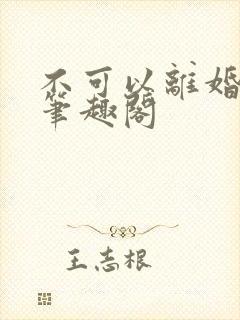 不可以離婚
筆趣閣
王志根